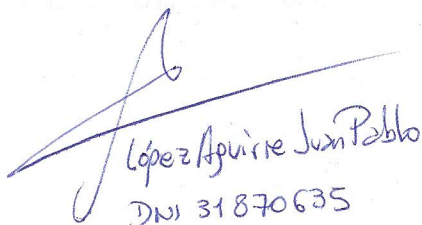 López Aguirre Juan Pablo
DNI 31870635